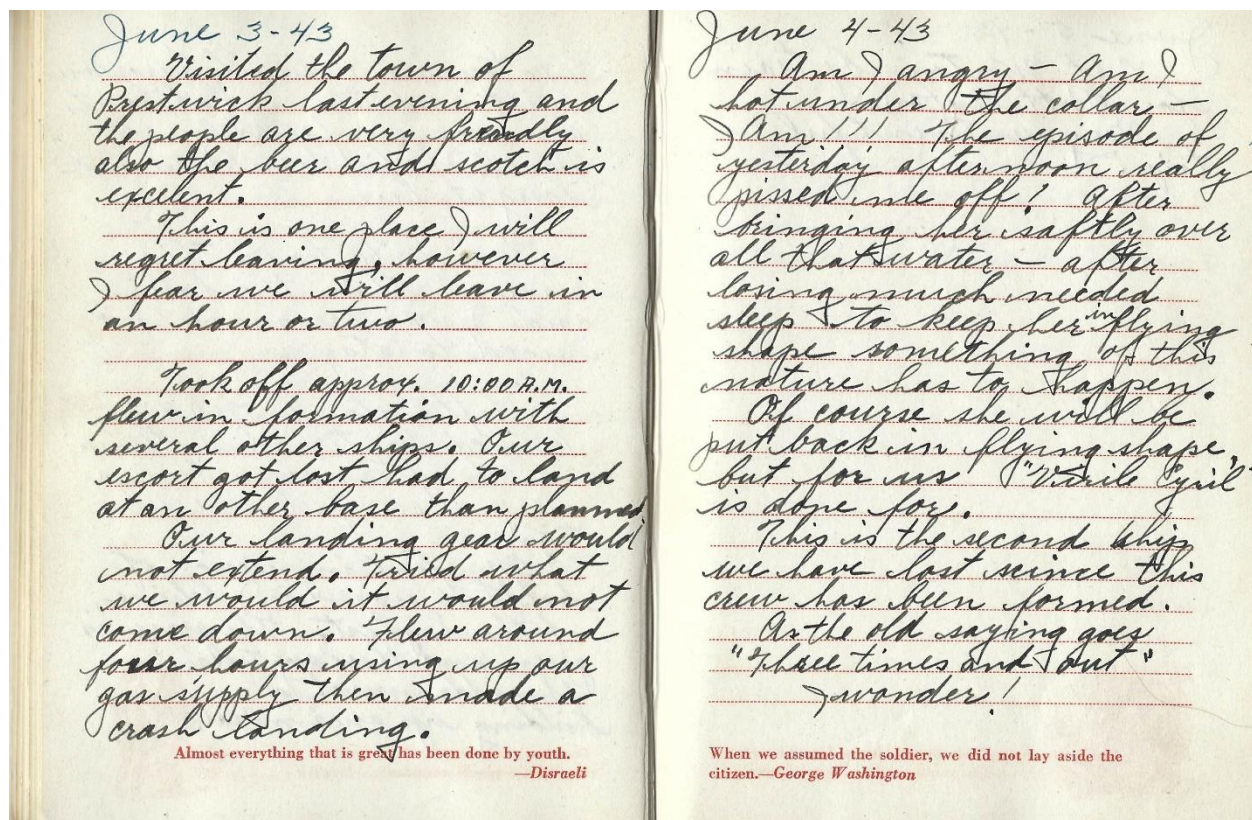 June 3-43
Visited the town of
Prestwick last evening and
the people are very friendly
also the beer and scotch is
excelent.
This is one place I will
regret leaving, however
I fear we will leave in
an hour or two.
Took off approx. 10:00 A.M.
flew in formation with
several other ships. Our
escort got lost had to land
at an other base than planned
Our landing gear would
not extend. Tried what
we would it would not
come down. Flew around
four hours using up our
gas supply then made a
crash landing.
Almost everything that is great has been done by youth.
—Disraeli
June 4-43
Am I angry - Am I
hot under the collar -
I Am!!! The episode of
yesterday afternoon really
pissed me off! After
bringing her saftly over
all that water - after
losing much needed
sleep to keep her in flying
shape something of this
nature has to happen.
Of course she will be
put back in flying shape,
but for us "Virile Cyril"
is done for.
This is the second ship
we have lost scince this
crew has been formed.
As the old saying goes
"Three times and out"
I wonder!
When we assumed the soldier, we did not lay aside the
citizen.—George Washington